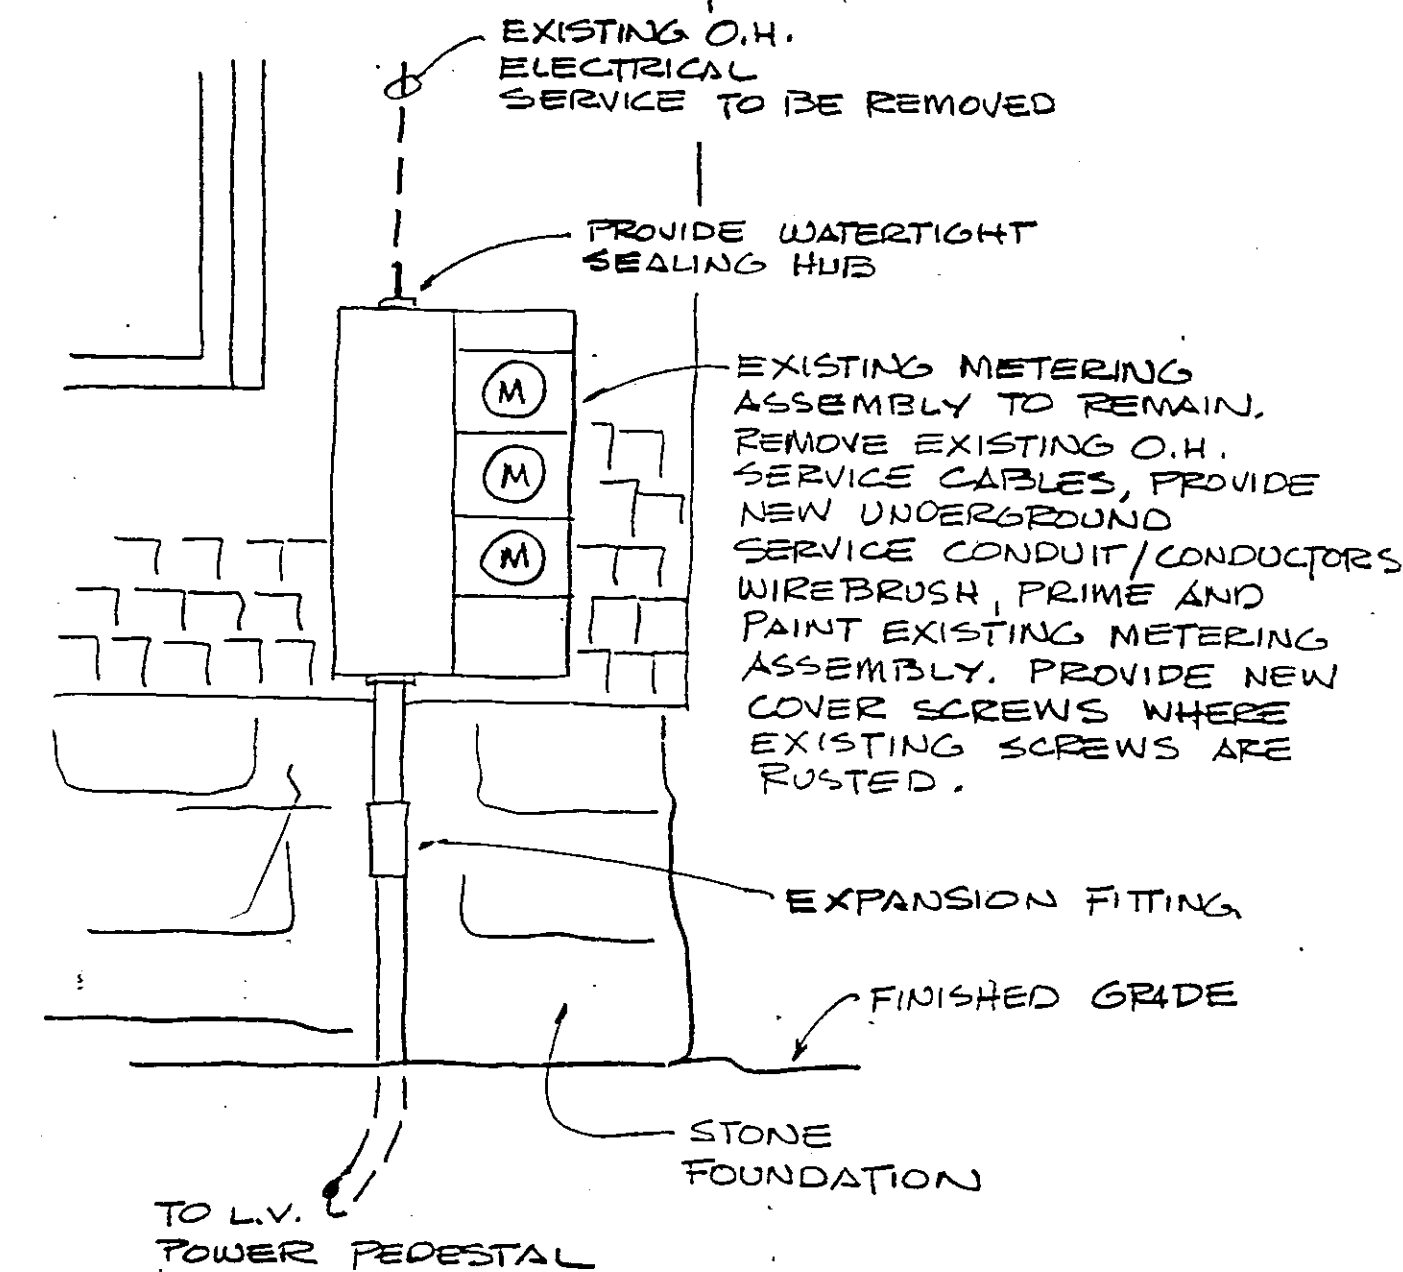 EXISTING O.H.
ELECTRICAL
SERVICE TO BE REMOVED
PROVIDE WATERTIGHT
SEALING HUB
M
M
M
EXISTING METERING
ASSEMBLY TO REMAIN.
REMOVE EXISTING O.H.
SERVICE CABLES, PROVIDE
NEW UNDERGROUND
SERVICE CONDUIT/CONDUCTORS
WIREBRUSH, PRIME AND
PAINT EXISTING METERING
ASSEMBLY. PROVIDE NEW
COVER SCREWS WHERE
EXISTING SCREWS ARE
RUSTED.
EXPANSION FITTING
FINISHED GRADE
STONE
FOUNDATION
TO L.V.
POWER PEDESTAL